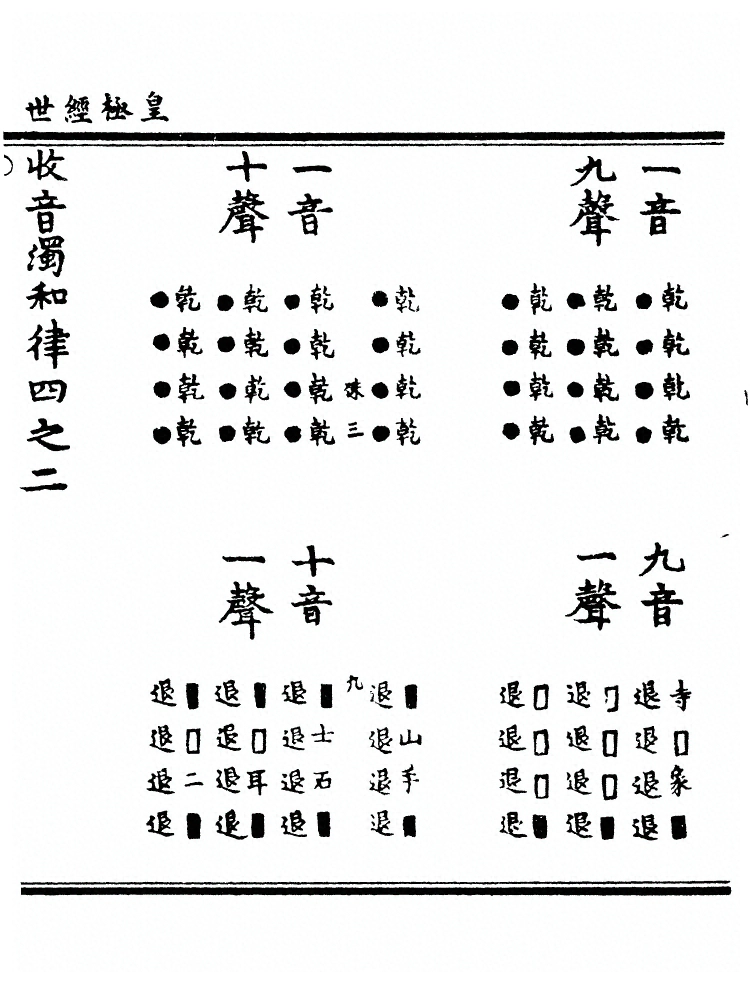 皇極經世
一音
九聲
乾乾乾乾
●●●●
乾乾乾乾
●●●●
乾乾乾乾
●●●●
九音
一聲
寺□象■
退退退退
□□□■
退退退退
□□□■
退退退退
乾乾乾乾
●●●●
■山手■
退退退退
三
九
一音
十聲
乾乾乾乾
●●●●
乾乾乾乾
●●●●
乾乾乾乾
●●●●
十音
一聲
■士石■
退退退退
■□耳■
退退退退
■□二■
退退退退
收音濁和律四之二